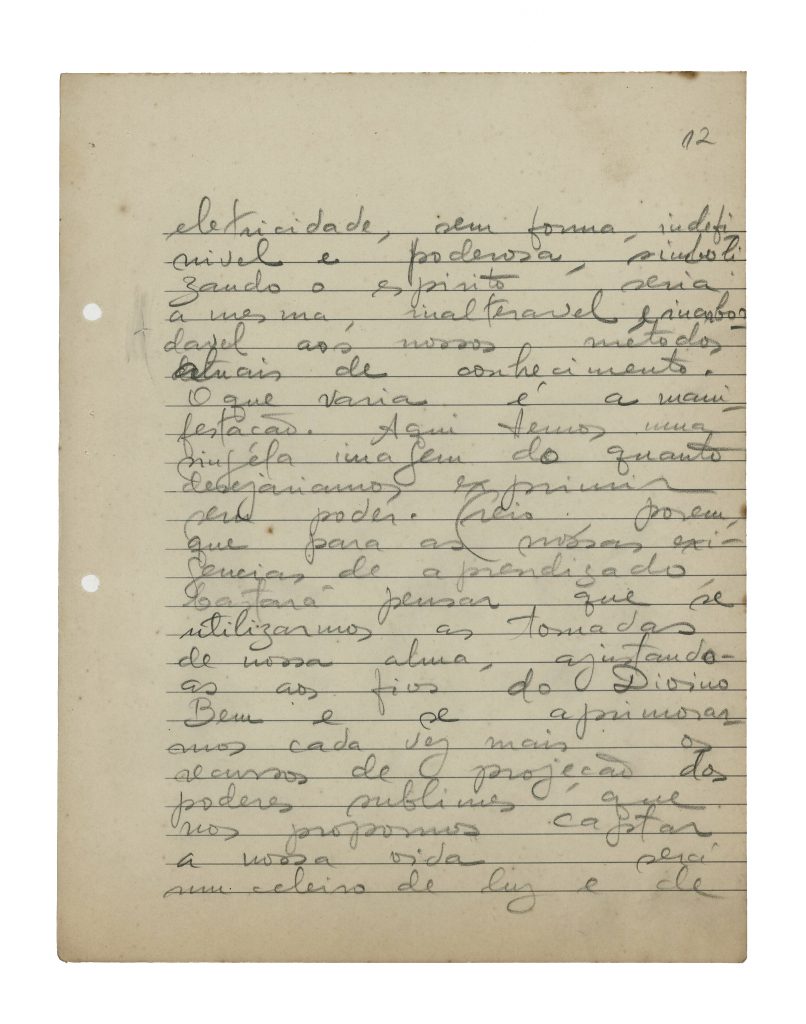 12
eletricidade, sem forma, indefi
nivel e poderosa, simboli
zando o espirito, seria
a mesma, inalteravel e inabor
davel aos nossos métodos
atuais de conhecimento.
O que varia é a mani-
festacão. Aqui temos uma
singéla imagem do quanto
desejariamos exprimir
sem poder. Creio porem
que para as nossas exi-
gencias de aprendizado
bastará pensar que se
utilizarmos as tomadas
de nossa alma, ajustando-
as aos fios do Divino
Bem e se aprimorar
mos cada vez mais os
recursos de projecão dos
poderes sublimes que
nos propomos captar
a nossa vida será
um celeiro de luz e de